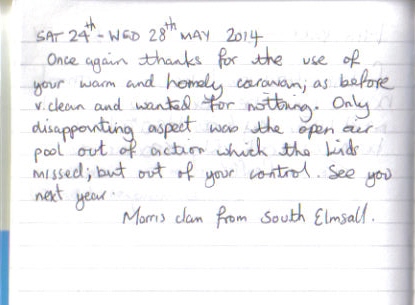 SAT 24th - WED 28th MAY 2014
Once again thanks for the use of
your warm and homely caravan; as before
v.clean and wanted for nothing. Only
disappointing aspect was the open air
pool out of action which the kids
missed; but out of your control. See you
next year.
Morris clan from South Elmsall.